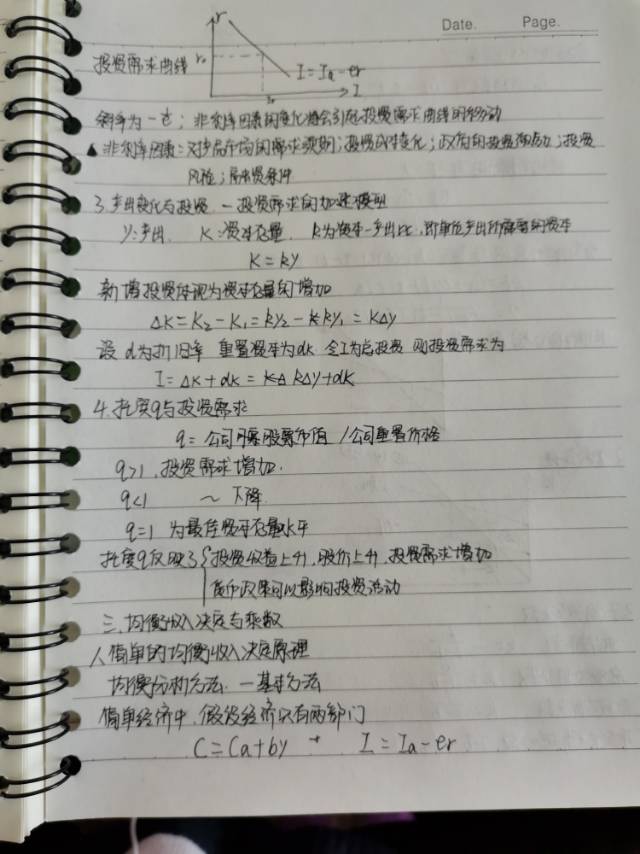 Date. Page.
r
投资需求曲线
r₀
I=Ia-er
I
斜率为-e; 非利率因素的变化将会引起投资需求曲线的移动
▲非利率因素:对将后市场的需求预期;投资成本变化;政府的投资;投资
风险;融资条件
3.产出变化与投资 - 投资需求的加速模型
y:产出. K:资本存量. k为资本-产出比,即单位产出所需要的资本
K=ky
新增投资体现为资本存量的增加
ΔK=K₂-K₁=ky₂-ky₁=kΔy
设d为折旧率 重置资本为dk 令I为总投资 则投资需求为
I=ΔK+dk=kΔy+dk
4.托宾q与投资需求
q=公司股票市值/公司重置价格
q>1,投资需求增加.
q<1 ~下降
q=1 为最佳资本存量水平
托宾q反映了{投资收益上升,股价上升,投资需求增加
货币政策可以影响投资活动
三、均衡收入决定与乘数
1.简单的均衡收入决定原理
均衡分析方法 - 基本方法
简单经济中,假设经济只有两部门
C=Ca+by + I=Ia-er